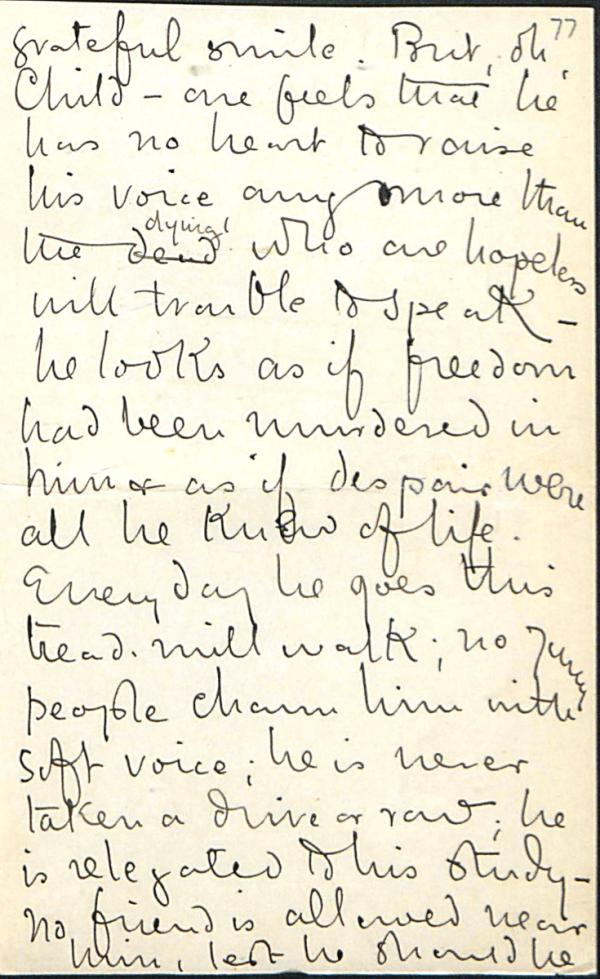 77
grateful smile. But, oh
Child – one feels that he
has no heart to raise
his voice any more than
dying
the dead who are hopeless
will trouble to speak –
he looks as if freedom
had been murdered in
him & as if despair were
all he knew of life.
Every day he goes this
tread-mill walk; no young
people charm him with
soft voice; he is never
taken a drive or row; he
is relegated to his study –
no friend is allowed near
him, lest he should be